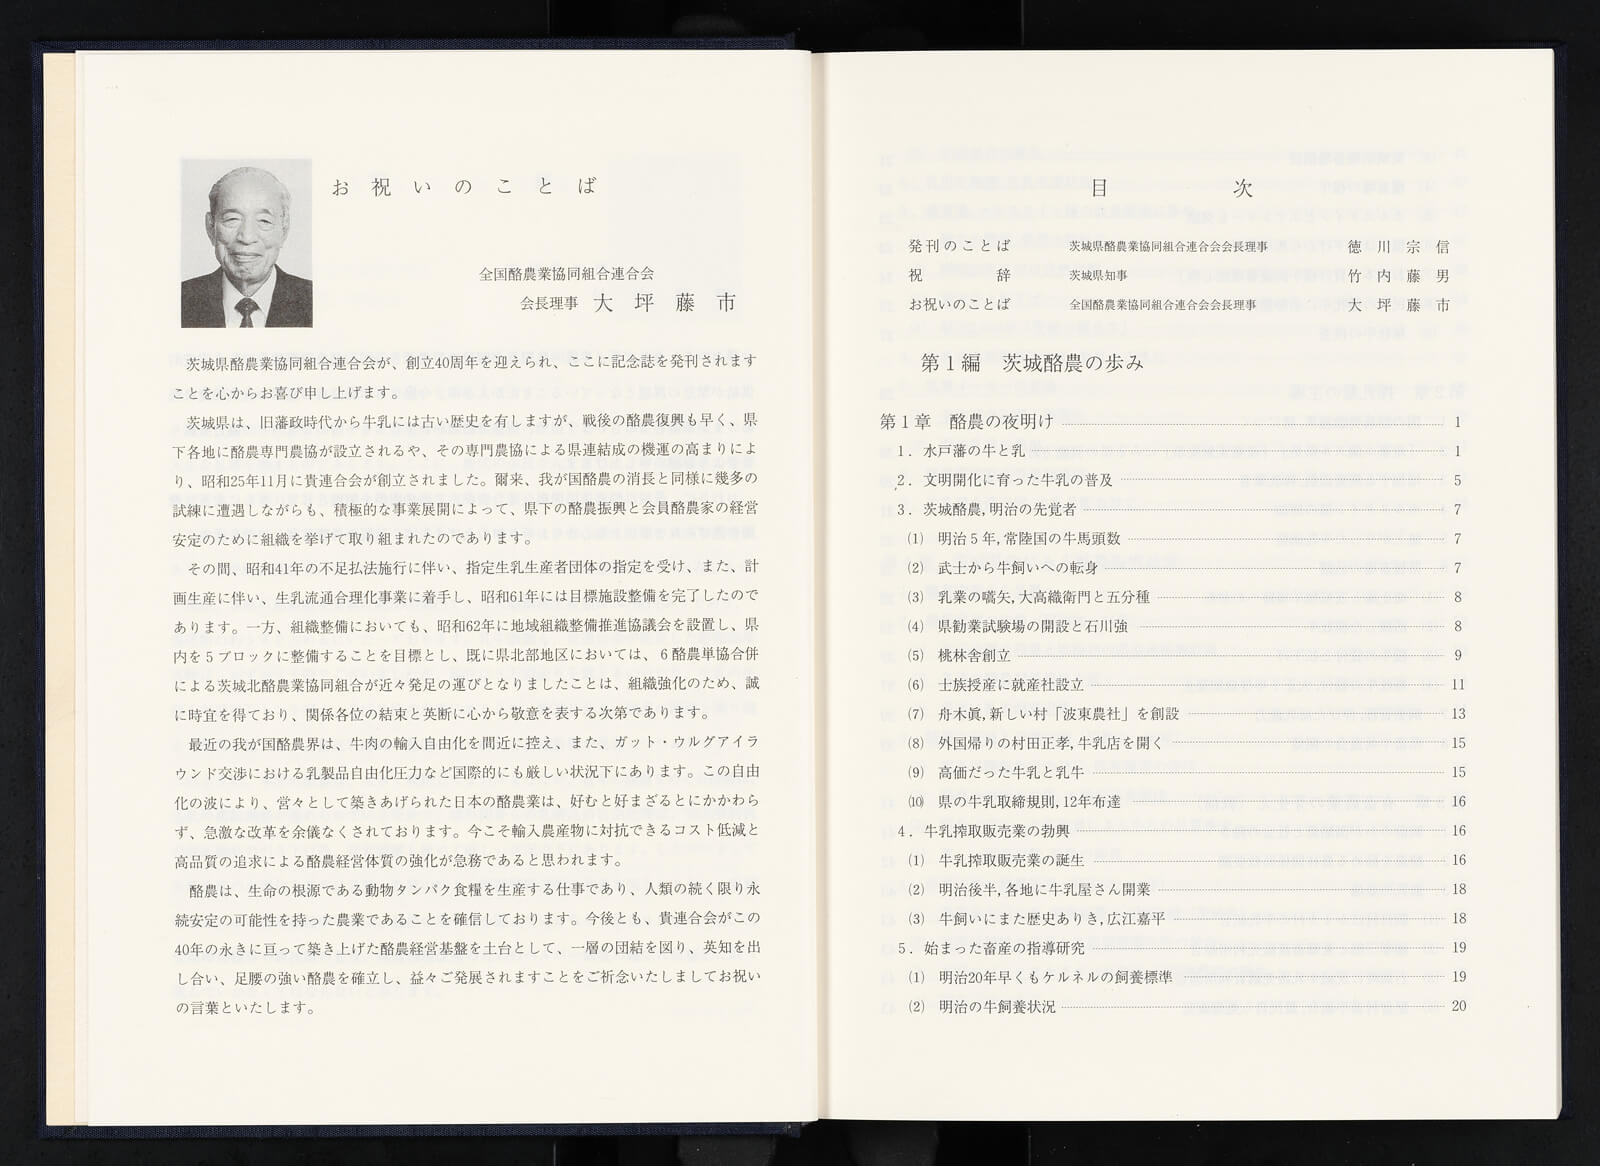 お祝いのことば
全国酪農業協同組合連合会
会長理事 大坪藤市
茨城県酪農業協同組合連合会が、創立40周年を迎えられ、ここに記念誌を発刊されます
ことを心からお喜び申し上げます。
茨城県は、旧藩政時代から牛乳には古い歴史を有しますが、戦後の酪農復興も早く、県
下各地に酪農専門農協が設立されるや、その専門農協による県連結成の機運の高まりによ
り、昭和25年11月に貴連合会が創立されました。爾来、我が国酪農の消長と同様に幾多の
試練に遭遇しながらも、積極的な事業展開によって、県下の酪農振興と会員酪農家の経営
安定のために組織を挙げて取り組まれたのであります。
その間、昭和41年の不足払法施行に伴い、指定生乳生産者団体の指定を受け、また、計
画生産に伴い、生乳流通合理化事業に着手し、昭和61年には目標施設整備を完了したので
あります。一方、組織整備においても、昭和62年に地域組織整備推進協議会を設置し、県
内を5ブロックに整備することを目標とし、既に県北部地区においては、6酪農単協合併
による茨城北酪農業協同組合が近々発足の運びとなりましたことは、組織強化のため、誠
に時宜を得ており、関係各位の結束と英断に心から敬意を表する次第であります。
最近の我が国酪農界は、牛肉の輸入自由化を間近に控え、また、ガット・ウルグアイラ
ウンド交渉における乳製品自由化圧力など国際的にも厳しい状況下にあります。この自由
化の波により、営々として築きあげられた日本の酪農業は、好むと好まざるとにかかわら
ず、急激な改革を余儀なくされております。今こそ輸入農産物に対抗できるコスト低減と
高品質の追求による酪農経営体質の強化が急務であると思われます。
酪農は、生命の根源である動物タンパク食糧を生産する仕事であり、人類の続く限り永
続安定の可能性を持った農業であることを確信しております。今後とも、貴連合会がこの
40年の永きに亘って築き上げた酪農経営基盤を土台として、一層の団結を図り、英知を出
し合い、足腰の強い酪農を確立し、益々ご発展されますことをご祈念いたしましてお祝い
の言葉といたします。
目次
発刊のことば 茨城県酪農業協同組合連合会会長理事 徳川宗信
祝辞 茨城県知事 竹内藤男
お祝いのことば 全国酪農業協同組合連合会会長理事 大坪藤市
第1編 茨城酪農の歩み
第1章 酪農の夜明け 1
1. 水戸藩の牛と乳 1
2. 文明開化に育った牛乳の普及 5
3. 茨城酪農,明治の先覚者 7
(1) 明治5年,常陸国の牛馬頭数 7
(2) 武士から牛飼いへの転身 7
(3) 乳業の嚆矢,大高織衛門と五分種 8
(4) 県勧業試験場の開設と石川強 8
(5) 桃林舎創立 9
(6) 士族授産に就産社設立 11
(7) 舟木眞,新しい村「波東農社」を創設 13
(8) 外国帰りの村田正孝,牛乳店を開く 15
(9) 高価だった牛乳と乳牛 15
(10) 県の牛乳取締規則,12年布達 16
4. 牛乳搾取販売業の勃興 16
(1) 牛乳搾取販売業の誕生 16
(2) 明治後半,各地に牛乳屋さん開業 18
(3) 牛飼いにまた歴史ありき,広江嘉平 18
5. 始まった畜産の指導研究 19
(1) 明治20年早くもケルネルの飼養標準 19
(2) 明治の牛飼養状況 20